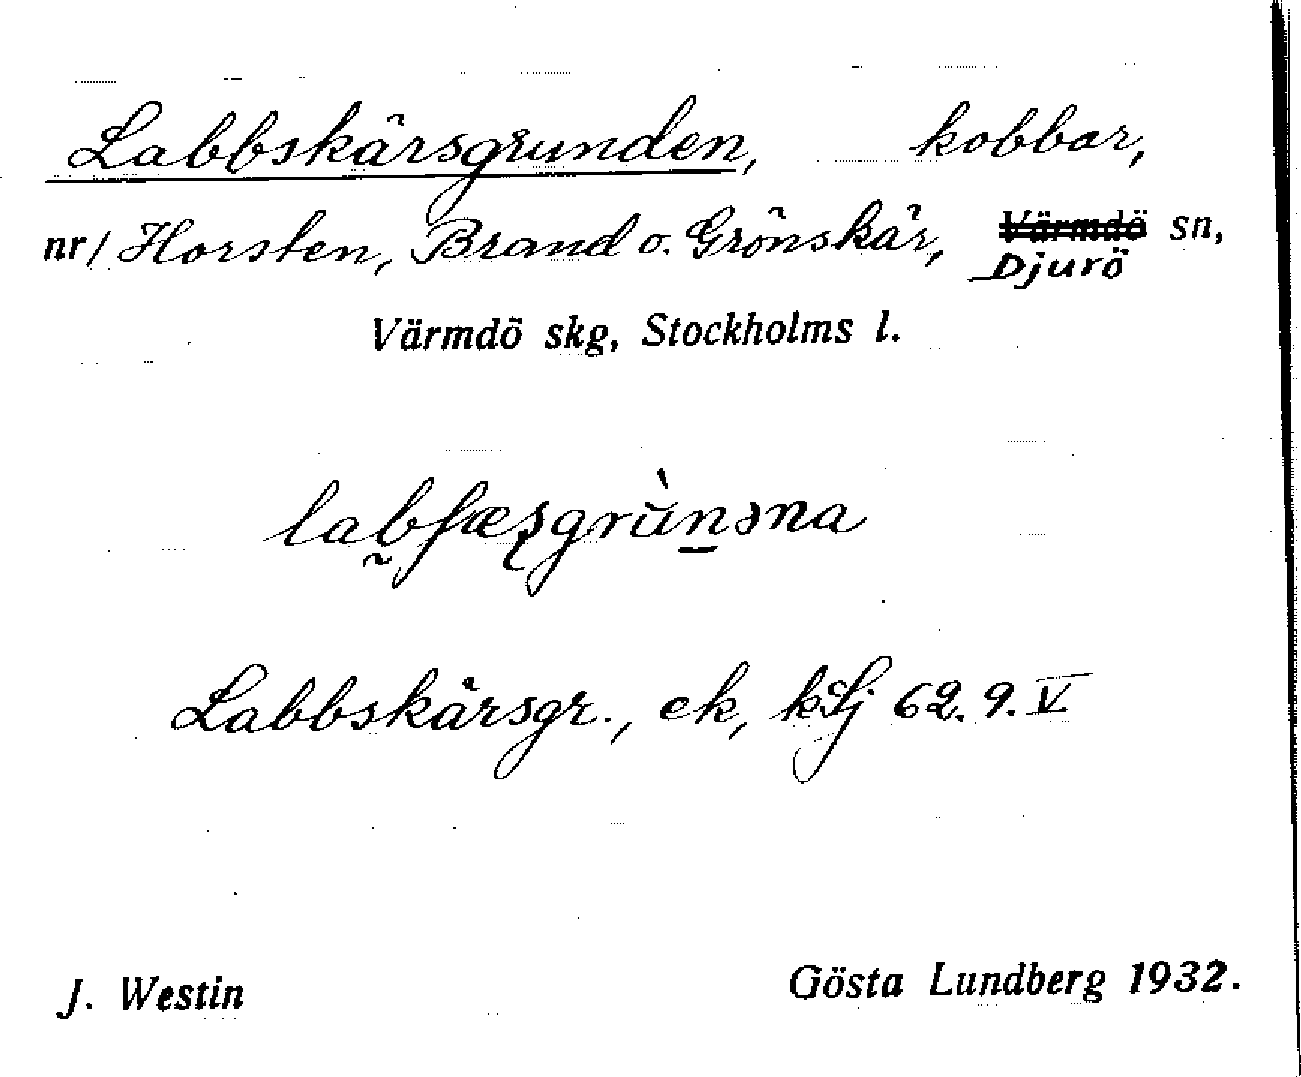 Labbskärsgrunden, kobbar,
nr/ Horsten, Brand o. Grönskär, Värmdö sn,
Djurö
Värmdö skg, Stockholms l.
Labbskärsgr., ek, kSj 62. 9. V
J. Westin Gösta Lundberg 1932.